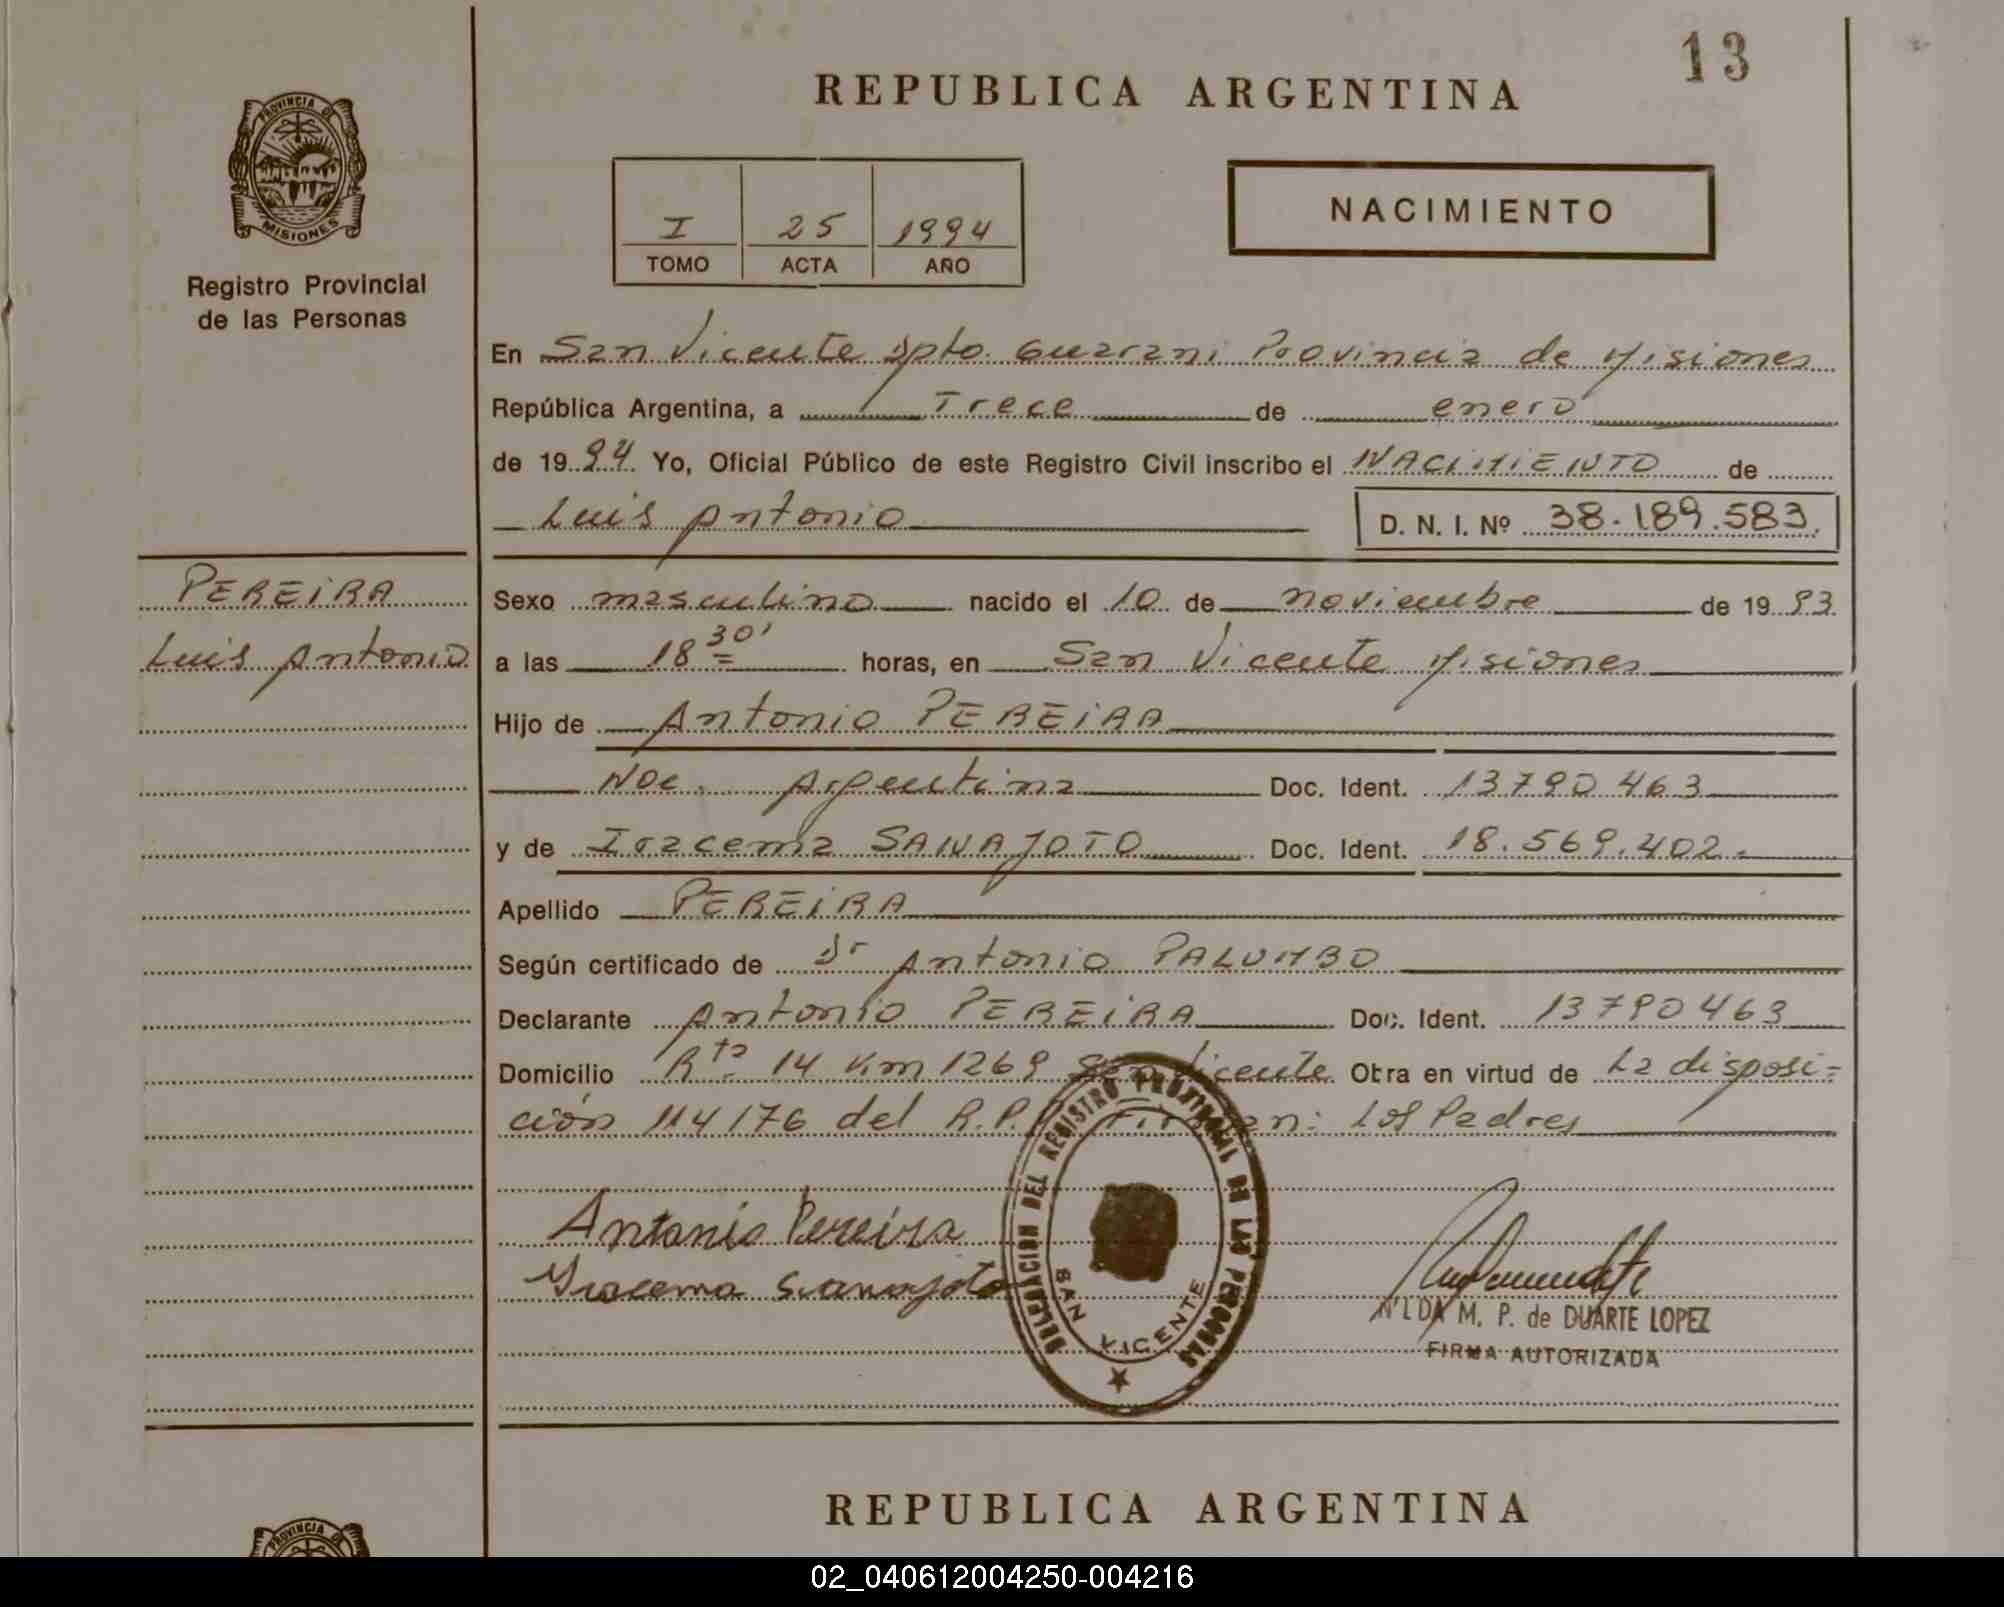 13
REPUBLICA ARGENTINA
PROVINCIA DE
MISIONES
Registro Provincial
de las Personas
I 25 1994
TOMO ACTA AÑO
NACIMIENTO
En San Vicente Dpto. Guarani Provincia de Misiones
República Argentina, a Trece de enero
de 1994. Yo, Oficial Público de este Registro Civil inscribo el NACIMIENTO de
Luis Antonio D. N. I. Nº 38.189.583.
PEREIRA
Luis Antonio
Sexo masculino nacido el 10 de noviembre de 1993
a las 18 30' horas, en San Vicente Misiones
Hijo de Antonio PEREIRA
Nac. Argentina Doc. Ident. 13790463
y de Iracema SANAJOTO Doc. Ident. 18.569.402.
Apellido PEREIRA
Según certificado de Dr Antonio PALUMBO
Declarante Antonio PEREIRA Doc. Ident. 13790463
Domicilio Rta 14 Km 1269 San Vicente Obra en virtud de La disposi=
ción 114/76 del R.P. Los Padres
Antonio Pereira
Iracema Sanajoto
DELEGACION DEL REGISTRO PROVINCIAL DE LAS PERSONAS
SAN VICENTE
M. P. de DUARTE LOPEZ
FIRMA AUTORIZADA
REPUBLICA ARGENTINA
PROVINCIA DE
02_040612004250-004216